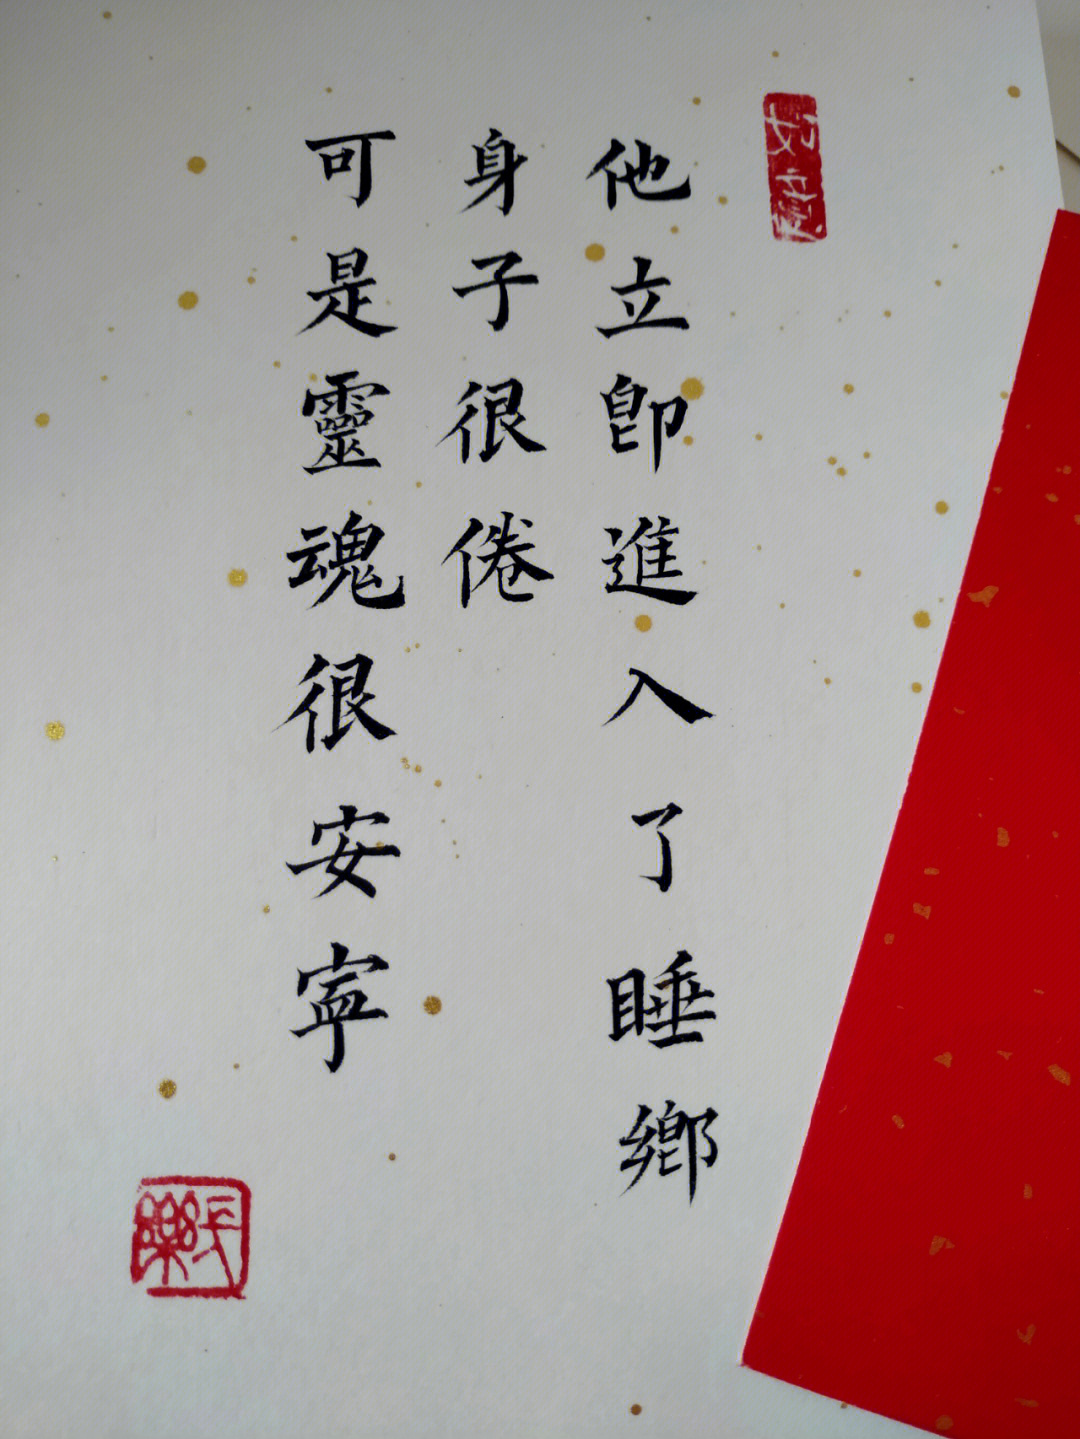 他立即進入了睡鄉
身子很倦
可是靈魂很安寧